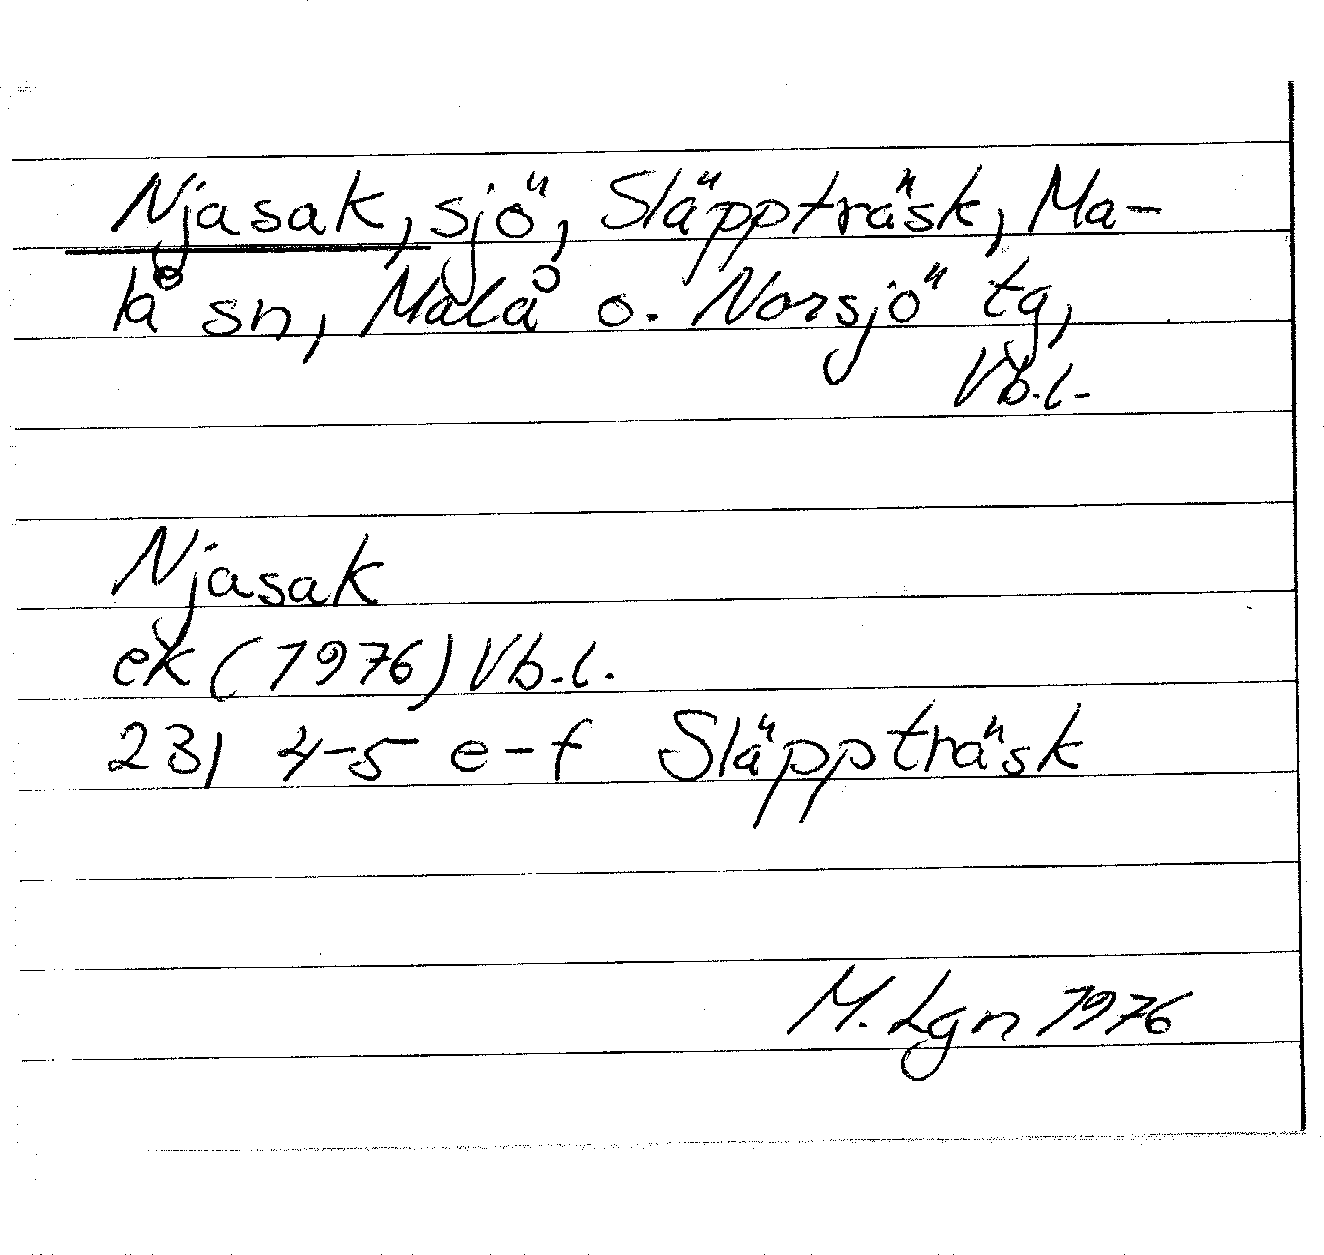 Njasak, sjö, Släppträsk, Ma-
lå sn, Malå o. Norsjö tg,
Vb.l.
Njasak
ek (1976) Vb.l.
23J 4-5 e-f Släppträsk
M. Lgn 1976